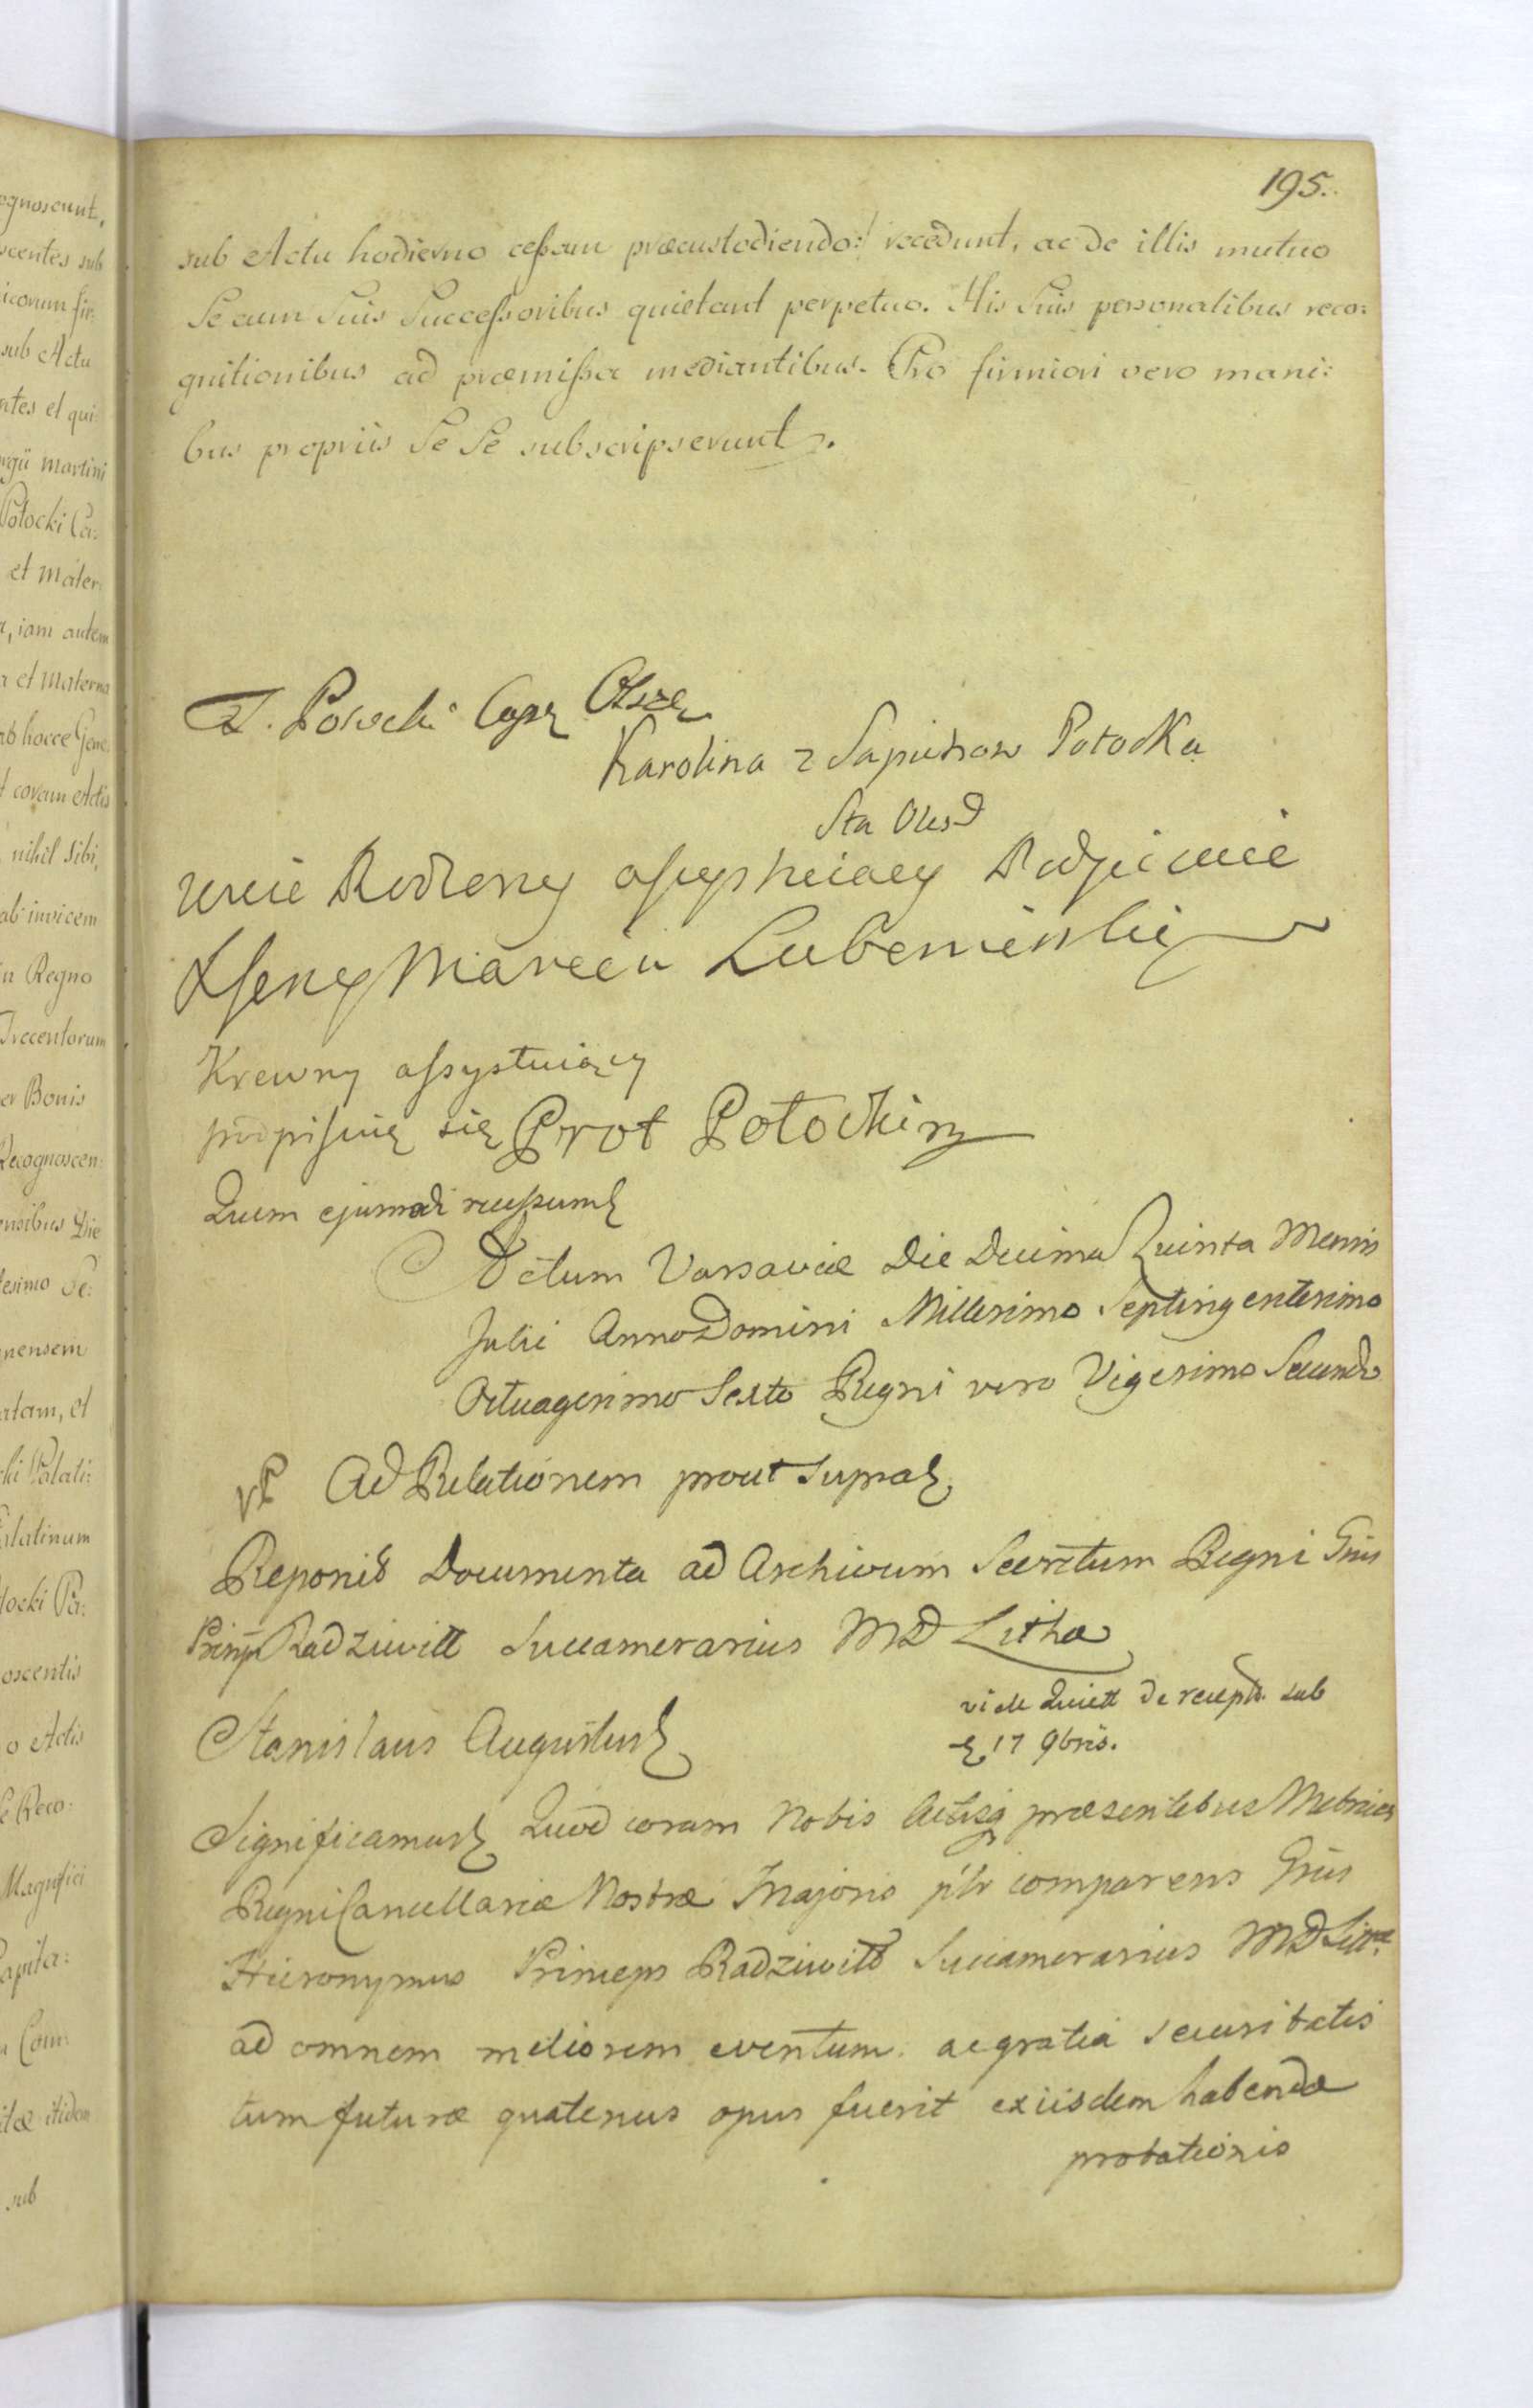 195.
sub Actu hodierno cessam præcustodiendo:/ recedunt, ac de illis mutuo
Se cum Suis Successoribus quietant perpetuo. His Suis personalibus reco:
gnitionibus ad præmissa mediantibus. Pro firmiori vero mani:
bus propriis Se Se subscripserunt.
Potocki
Karolina z Sapiehow Potocka
Sta
Rodzony assystuiący
Marcin Lubomirski
Krewny assystuiący
podpisuię się Prot Potocki mp
Quum ejusmodi
Actum Varsaviæ Die Decima Quinta Mensis
Julii Anno Domini Millesimo Septingentesimo
Octuagesimo Sexto Regni vero Vigesimo Secundo
Ad Relationem prout supra
Reponit Documenta ad Archivum Secretum Regni Gnus
Radziwill Succamerarius MD Lithæ
vide Quiett de recept. sub
17 9bris.
Stanislaus Augustus
Significamus Quod coram Nobis Actisq præsentibus Metrices
Regni Cancellariæ Nostræ Majoris plr comparens Gnus
Hieronymus Princeps Radziwill Succamerarius MD Litt
ad omnem meliorem eventum ac gratia securitatis
tum futuræ quatenus opus fuerit ex iisdem habendæ
probationis
ognoscunt,
scentes sub
sub Actu
ntes et qui
Martini
Potocki Ca:
et Mater
a, iam autem
a et Materna
ab hocce Gene
coram Actis
nihil Sibi,
ab invicem
in Regno
Trecentorum
er Bonis
Recognoscen:
ensibus Die
esimo Se:
nensem
atam, et
cki Palati:
alatinum
tocki Pa:
oscentis
o Actis
Reco:
Magnifici
apita:
Com:
itæ itidem
sub